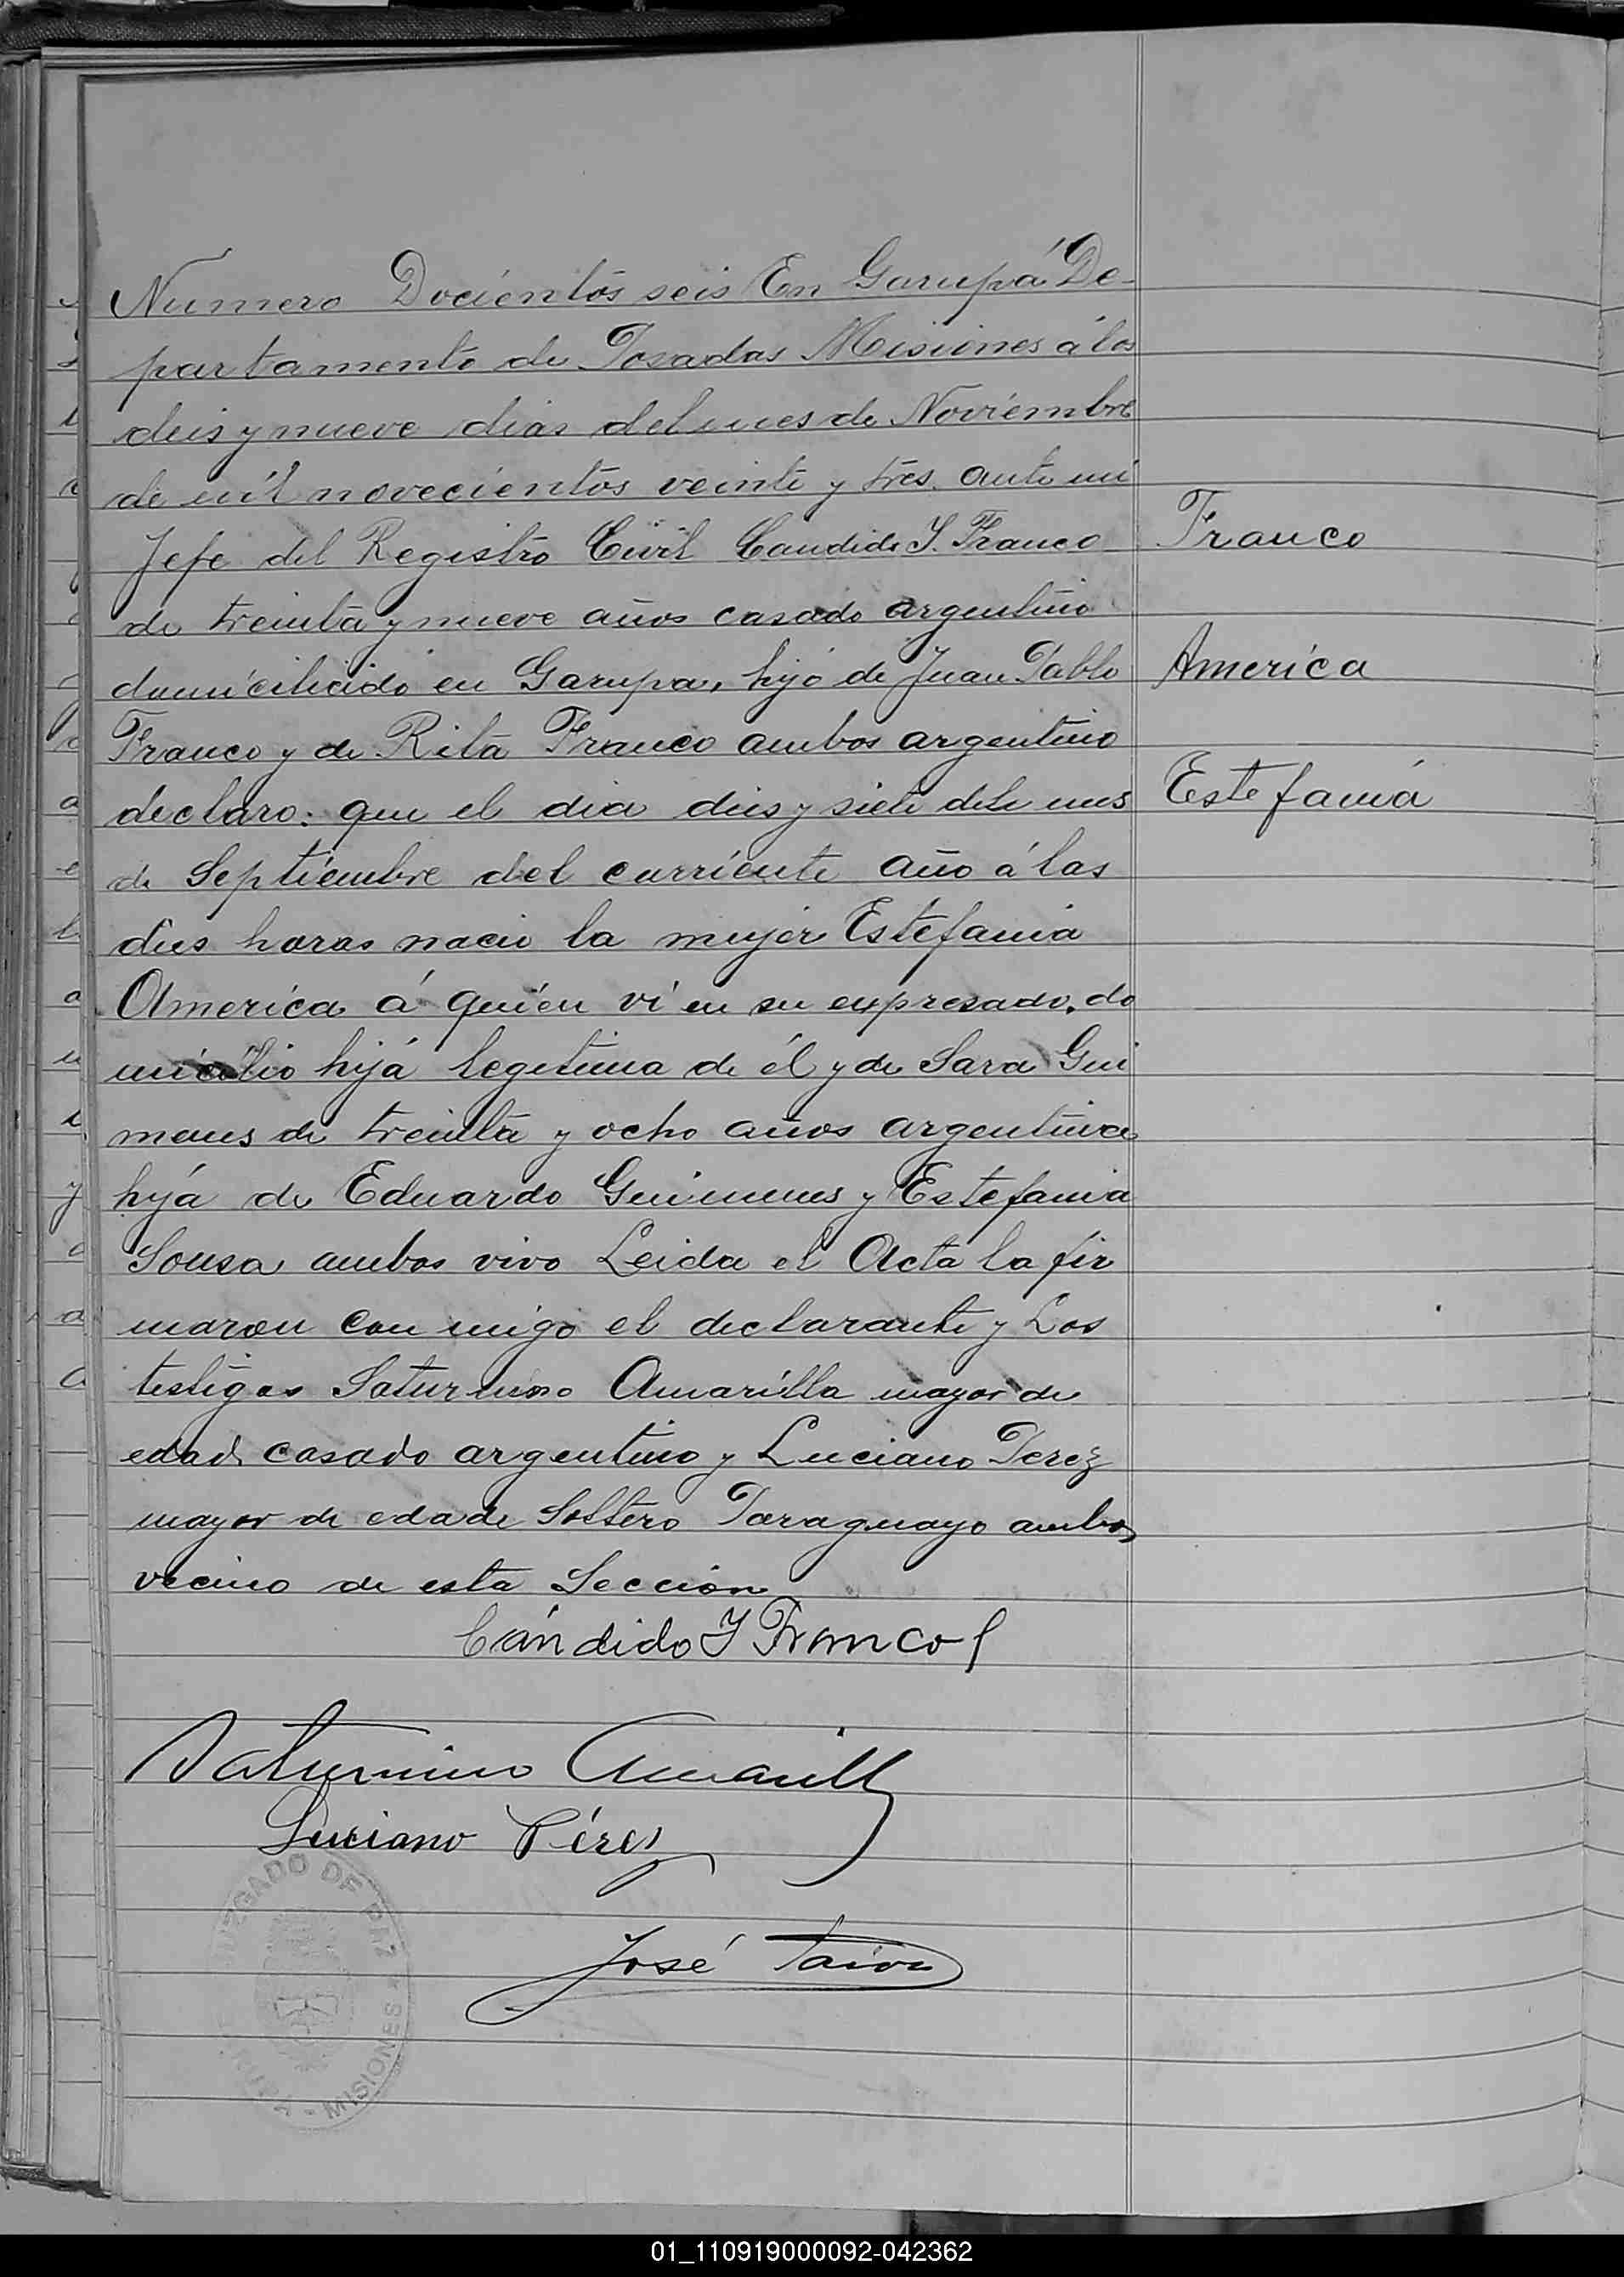 Numero Docientos seis En Garupá De-
partamento de Posadas Misiones á los
deis y nueve dias del mes de Noviembre
de mil novecientos veinte y tres. ante mi
Jefe del Registro Civil Candido Y. Franco
de treinta y nueve años casado argentino
domicilicido en Garupa, hijo de Juan Pablo
Franco y de Rita Franco ambos argentino
declaro: que el dia dies y siete dele mes
de Septiembre del curriente año á las
dies horas nacio la mujer Estefania
America á quien vi en su expresado. do
micilio hijá legetima de él y de Sara Gui
menes de treinta y ocho años argentina
hijá de Eduardo Guimenes y Estefania
Sousa ambos vivo Leida el Acta la fir
maron con migo el declarante y Los
testigos Saturnino Amarilla mayor de
edad casado argentino y Luciano Perez
mayor de edade Soltero Paraguayo ambos
vecino de esta Seccion
Cándido Y Franco
Saturnino Amarilla
Luciano Pérez
José
Franco
America
Estefaniá
JUZGADO DE PAZ
- MISIONES -
01_110919000092-042362